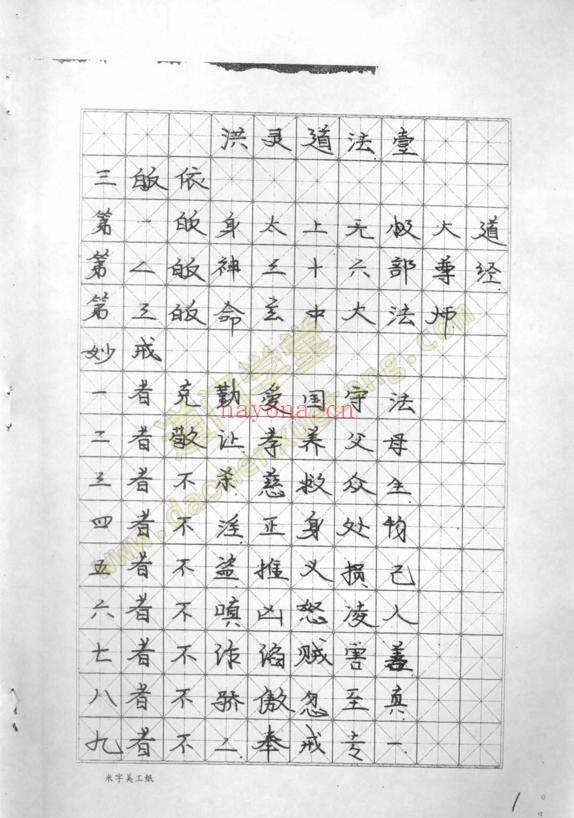 洪灵道法壹
三皈依
第一皈身太上无极大道
第二皈神三十六部尊经
第三皈命玄中大法师
妙戒
一者克勤爱国守法
二者敬让孝养父母
三者不杀慈救众生
四者不淫正身处物
五者不盗推义损己
六者不嗔凶怒凌人
七者不诈谄贼害善
八者不骄傲忽至真
九者不二奉戒专一
米字美工纸
1
道门学堂
nayona.cn
www.daomenxuetang.com